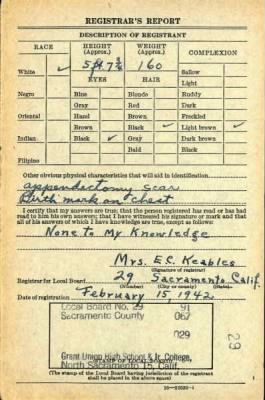 REGISTRAR'S REPORT
DESCRIPTION OF REGISTRANT
RACE HEIGHT (Approx.) WEIGHT (Approx.) COMPLEXION
White ✓ 160 Sallow
EYES HAIR Light
Negro Blue Blonde Ruddy
Gray Red Dark
Oriental Hazel Brown Freckled
Brown Black ✓ Light brown ✓
Indian Black ✓ Gray Dark brown
Bald Black
Filipino
Other obvious physical characteristics that will aid in identification
appendectomy scar
Birth mark on chest
I certify that my answers are true; that the person registered has read or has had
read to him his own answers; that I have witnessed his signature or mark and that
all of his answers of which I have knowledge are true, except as follows:
None to My Knowledge
Mrs. E.C. Keables
(Signature of registrar)
Registrar for Local Board 29 Sacramento Calif.
(Number) (City or county) (State)
Date of registration February 15, 1942
Local Board No. 29 91
Sacramento County 067
029
29
Grant Union High School & Jr. College,
North Sacramento 15, Calif.
(The stamp of the Local Board having jurisdiction of the registrant
shall be placed in the above space)